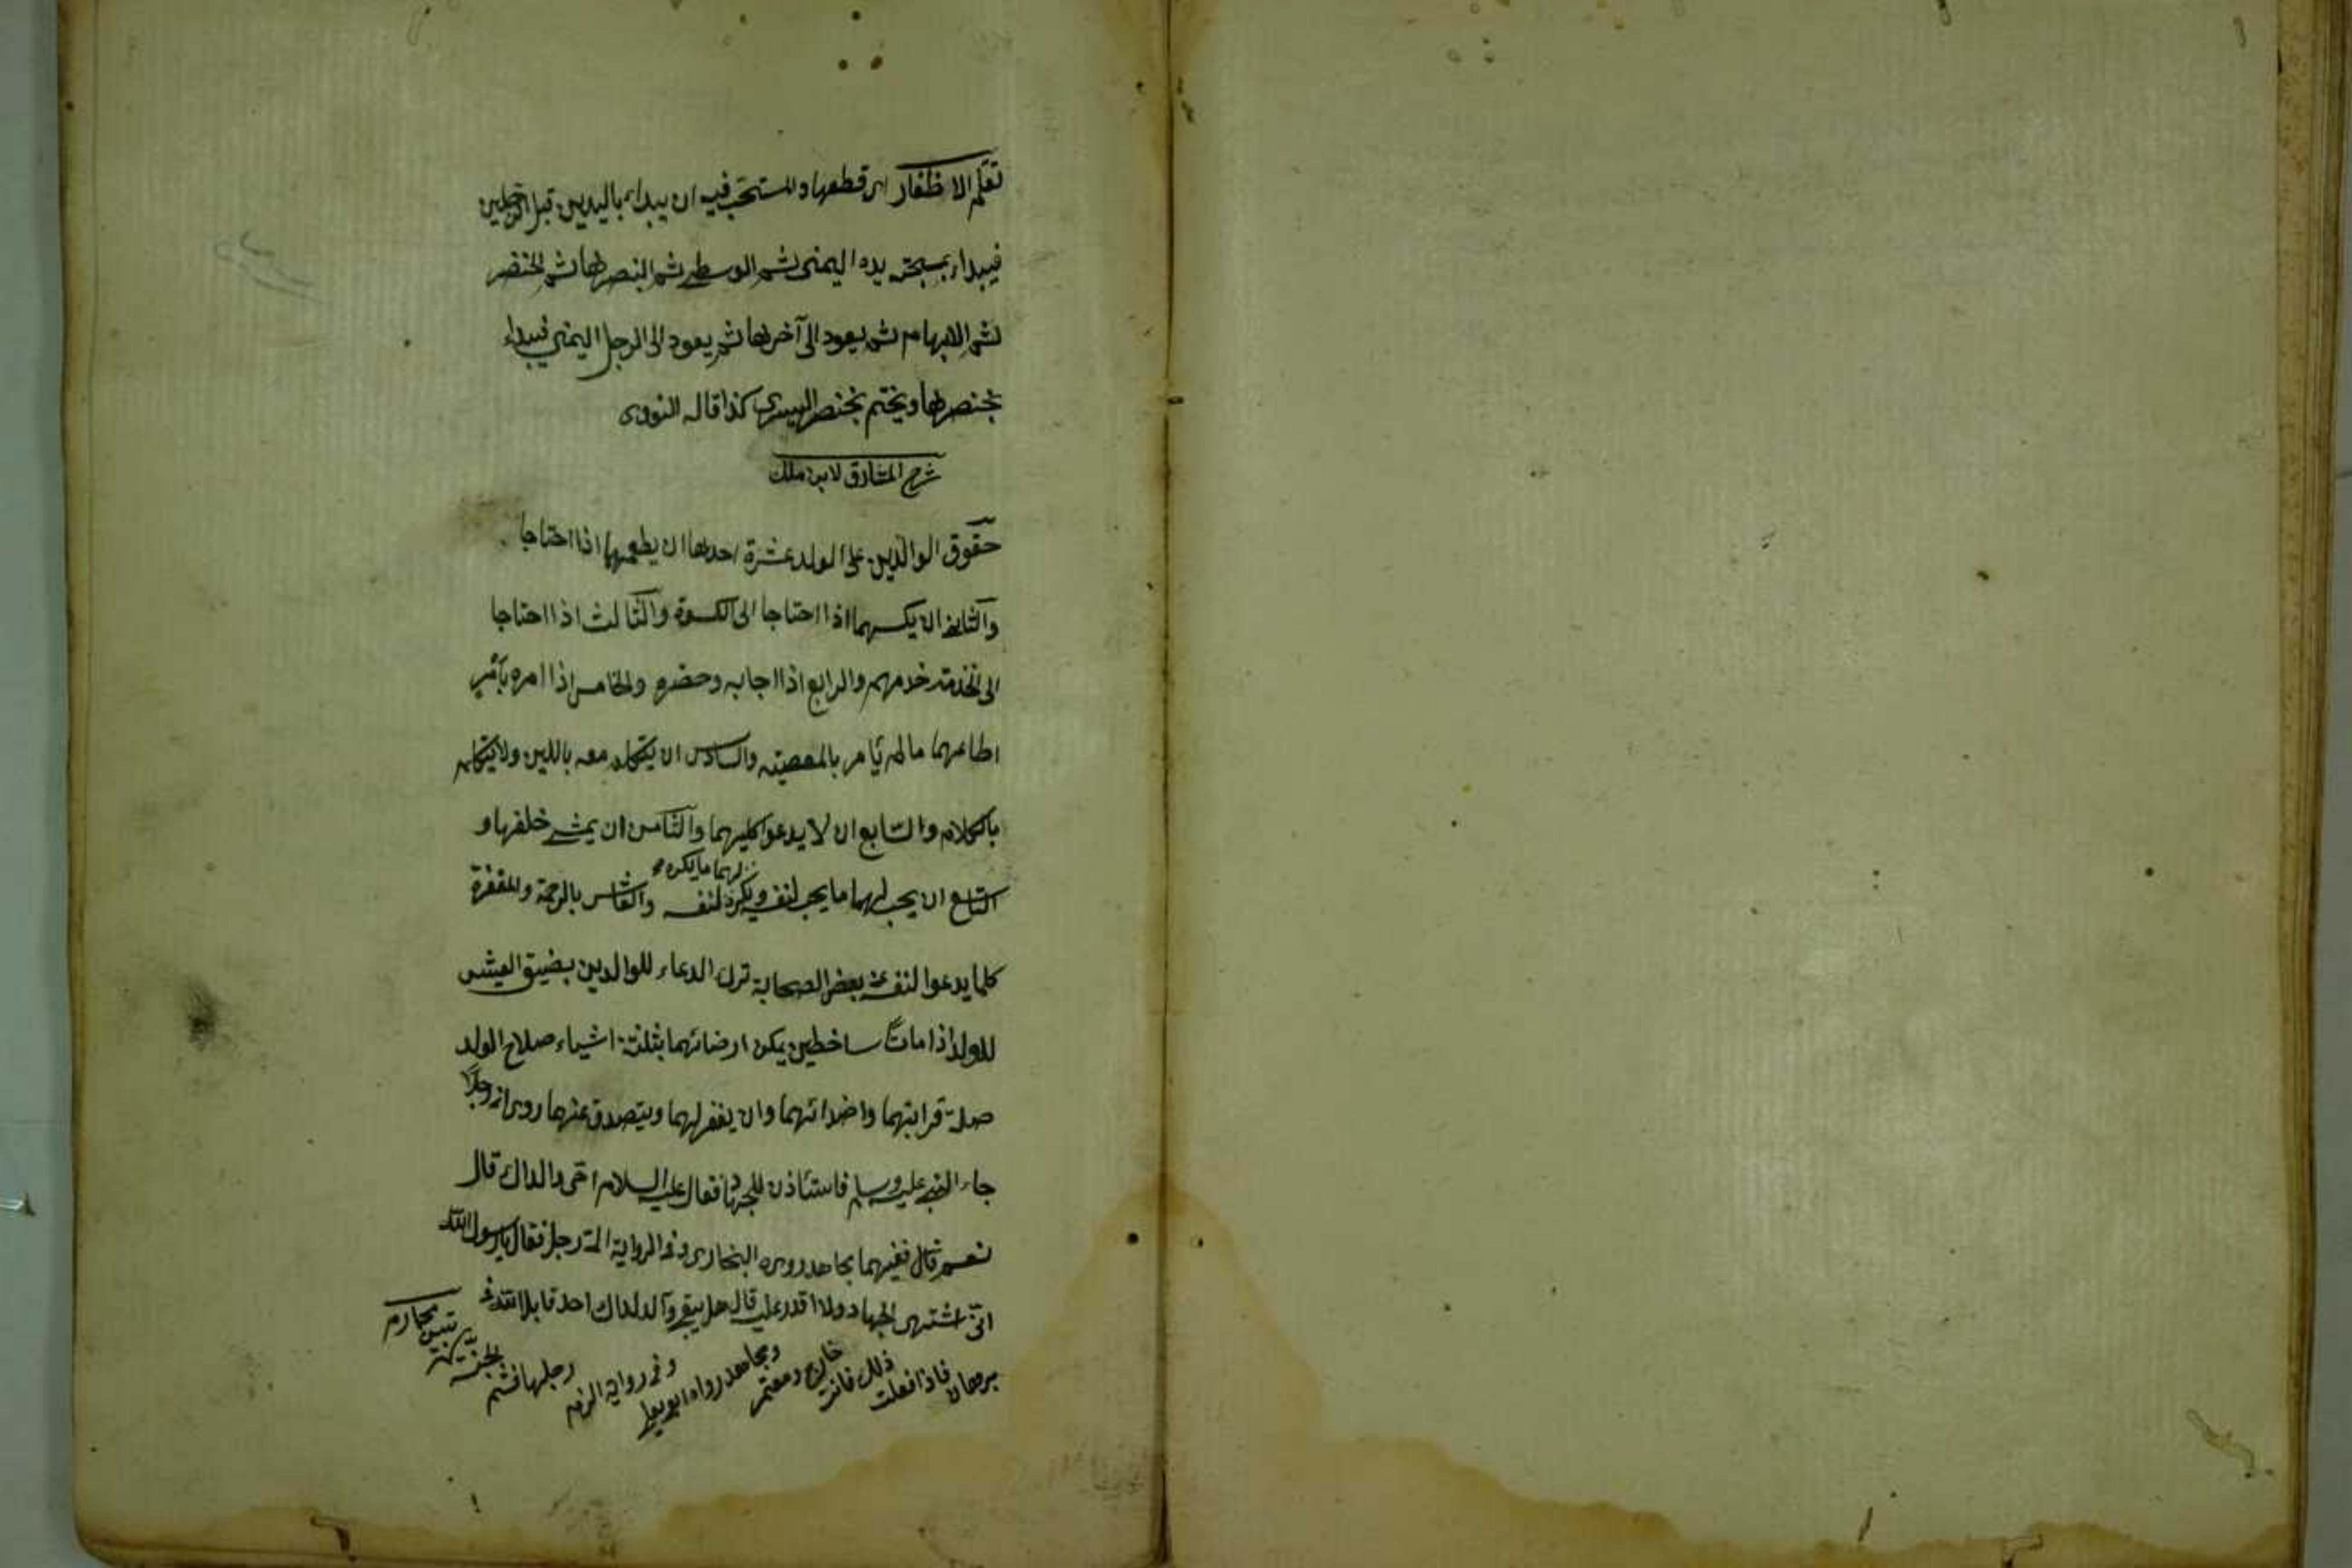 تقلم الاظفار اى قطعها والمستحب فيه ان يبداء باليدين قبل الرجلين
فيبداء بمسبحة يده اليمنى ثم الوسطى ثم البنصرها ثم الخنصر
ثم الابهام ثم يعود الى آخرها ثم يعود الى الرجل اليمنى فيبداء
بخنصرها ويختم بخنصر اليسرى كذا قاله النووى
شرح المشارق لابن ملك
حقوق الوالدين على الولد عشرة احدها ان يطعمهما اذا احتاجا
والثانى ان يكسهما اذا احتاجا الى الكسوة والثالث اذا احتاجا
الى الخدمة خدمهم والرابع اذا اجابه وحضره والخامس اذا امره بأمر
اطاعهما ما لم يأمر بالمعصيته والسادس ان يتكلم معه باللين ولا يتكلم
باكلام والسابع ان لا يدعوا عليهما والثامن ان يمشى خلفهما و
التاسع ان يحب لهما ما يحب لنفسه ويكره لهما ما يكره لنفسه والعاشر بالرحمة والمغفرة
كلما يدعوا لنفسه بعض الصحابة ترك الدعاء للوالدين يضيق العيش
للولد اذا ماتا ساخطين يمكن ارضائهما بثلثة اشياء صلاح الولد
صلة قرابتهما وان يغفر لهما ويتصدق عنهما روى ان رجلا
جاء النبى عليه وسلم فاستأذن للجهاد فقال عليه السلام احى والداك قال
نعم قال ففيهما بجاهد رويه البخارى وفى الرواية رجل فقال يا رسول الله
انى اشتهى الجهاد ولا اقدر عليه قال هل بقى والداك احد قابل الله فى
برهما فاذا فعلت ذلك فانت خارج ومعتمر ومجاهد رواه ابو يعلى وفى رواية الزم رجلها فثم الجنة